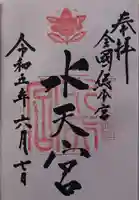 奉拝
全国総本宮
水天宮
令和五年六月七日